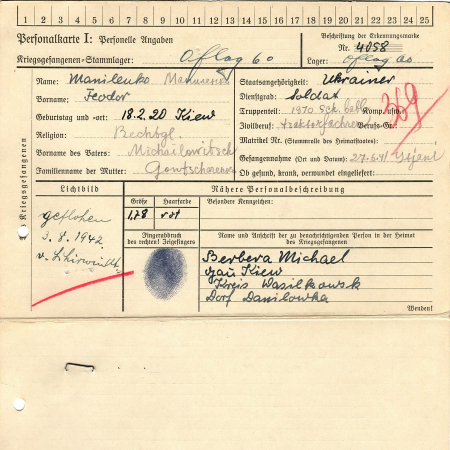 1 2 3 4 5 6 7 8 9 10 11 12 13 14 15 16 17 18 19 20 21 22 23 24 25
Personalkarte I: Personelle Angaben
Kriegsgefangenen-Stammlager: Oflag 60
Beschriftung der Erkennungsmarke
Nr. 4058
Lager: Oflag 60
Name: Manilenko
Vorname: Feodor
Geburtstag und -ort: 18.2.20 Kiew
Religion:
Vorname des Vaters: Michailowitsch
Familienname der Mutter:
Staatsangehörigkeit: Ukrainer
Dienstgrad: Soldat
Truppenteil: 1970 Komp. usw.:
Zivilberuf: Berufs-Gr.:
Matrikel Nr. (Stammrolle des Heimatstaates):
Gefangennahme (Ort und Datum): 27.6.41
Ob gesund, krank, verwundet eingeliefert:
369
des Kriegsgefangenen
Lichtbild
geflohen
3.8.1942
Nähere Personalbeschreibung
Größe
1,78
Haarfarbe
rot
Besondere Kennzeichen:
Fingerabdruck
des rechten! Zeigefingers
Name und Anschrift der zu benachrichtigenden Person in der Heimat
des Kriegsgefangenen
Berbera Michael
gau Kiew
Kreis Wasilkowsk
Dorf Danilowka
Wenden!